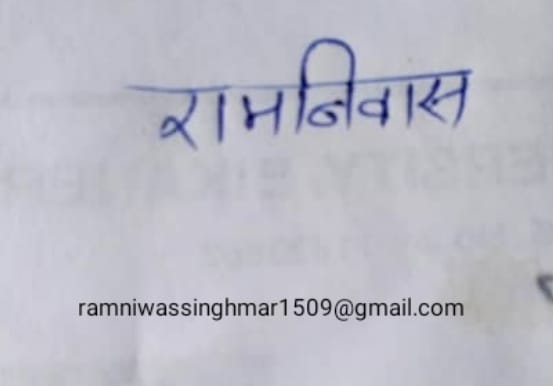 रामनिवास
ramniwassinghmar1509@gmail.com